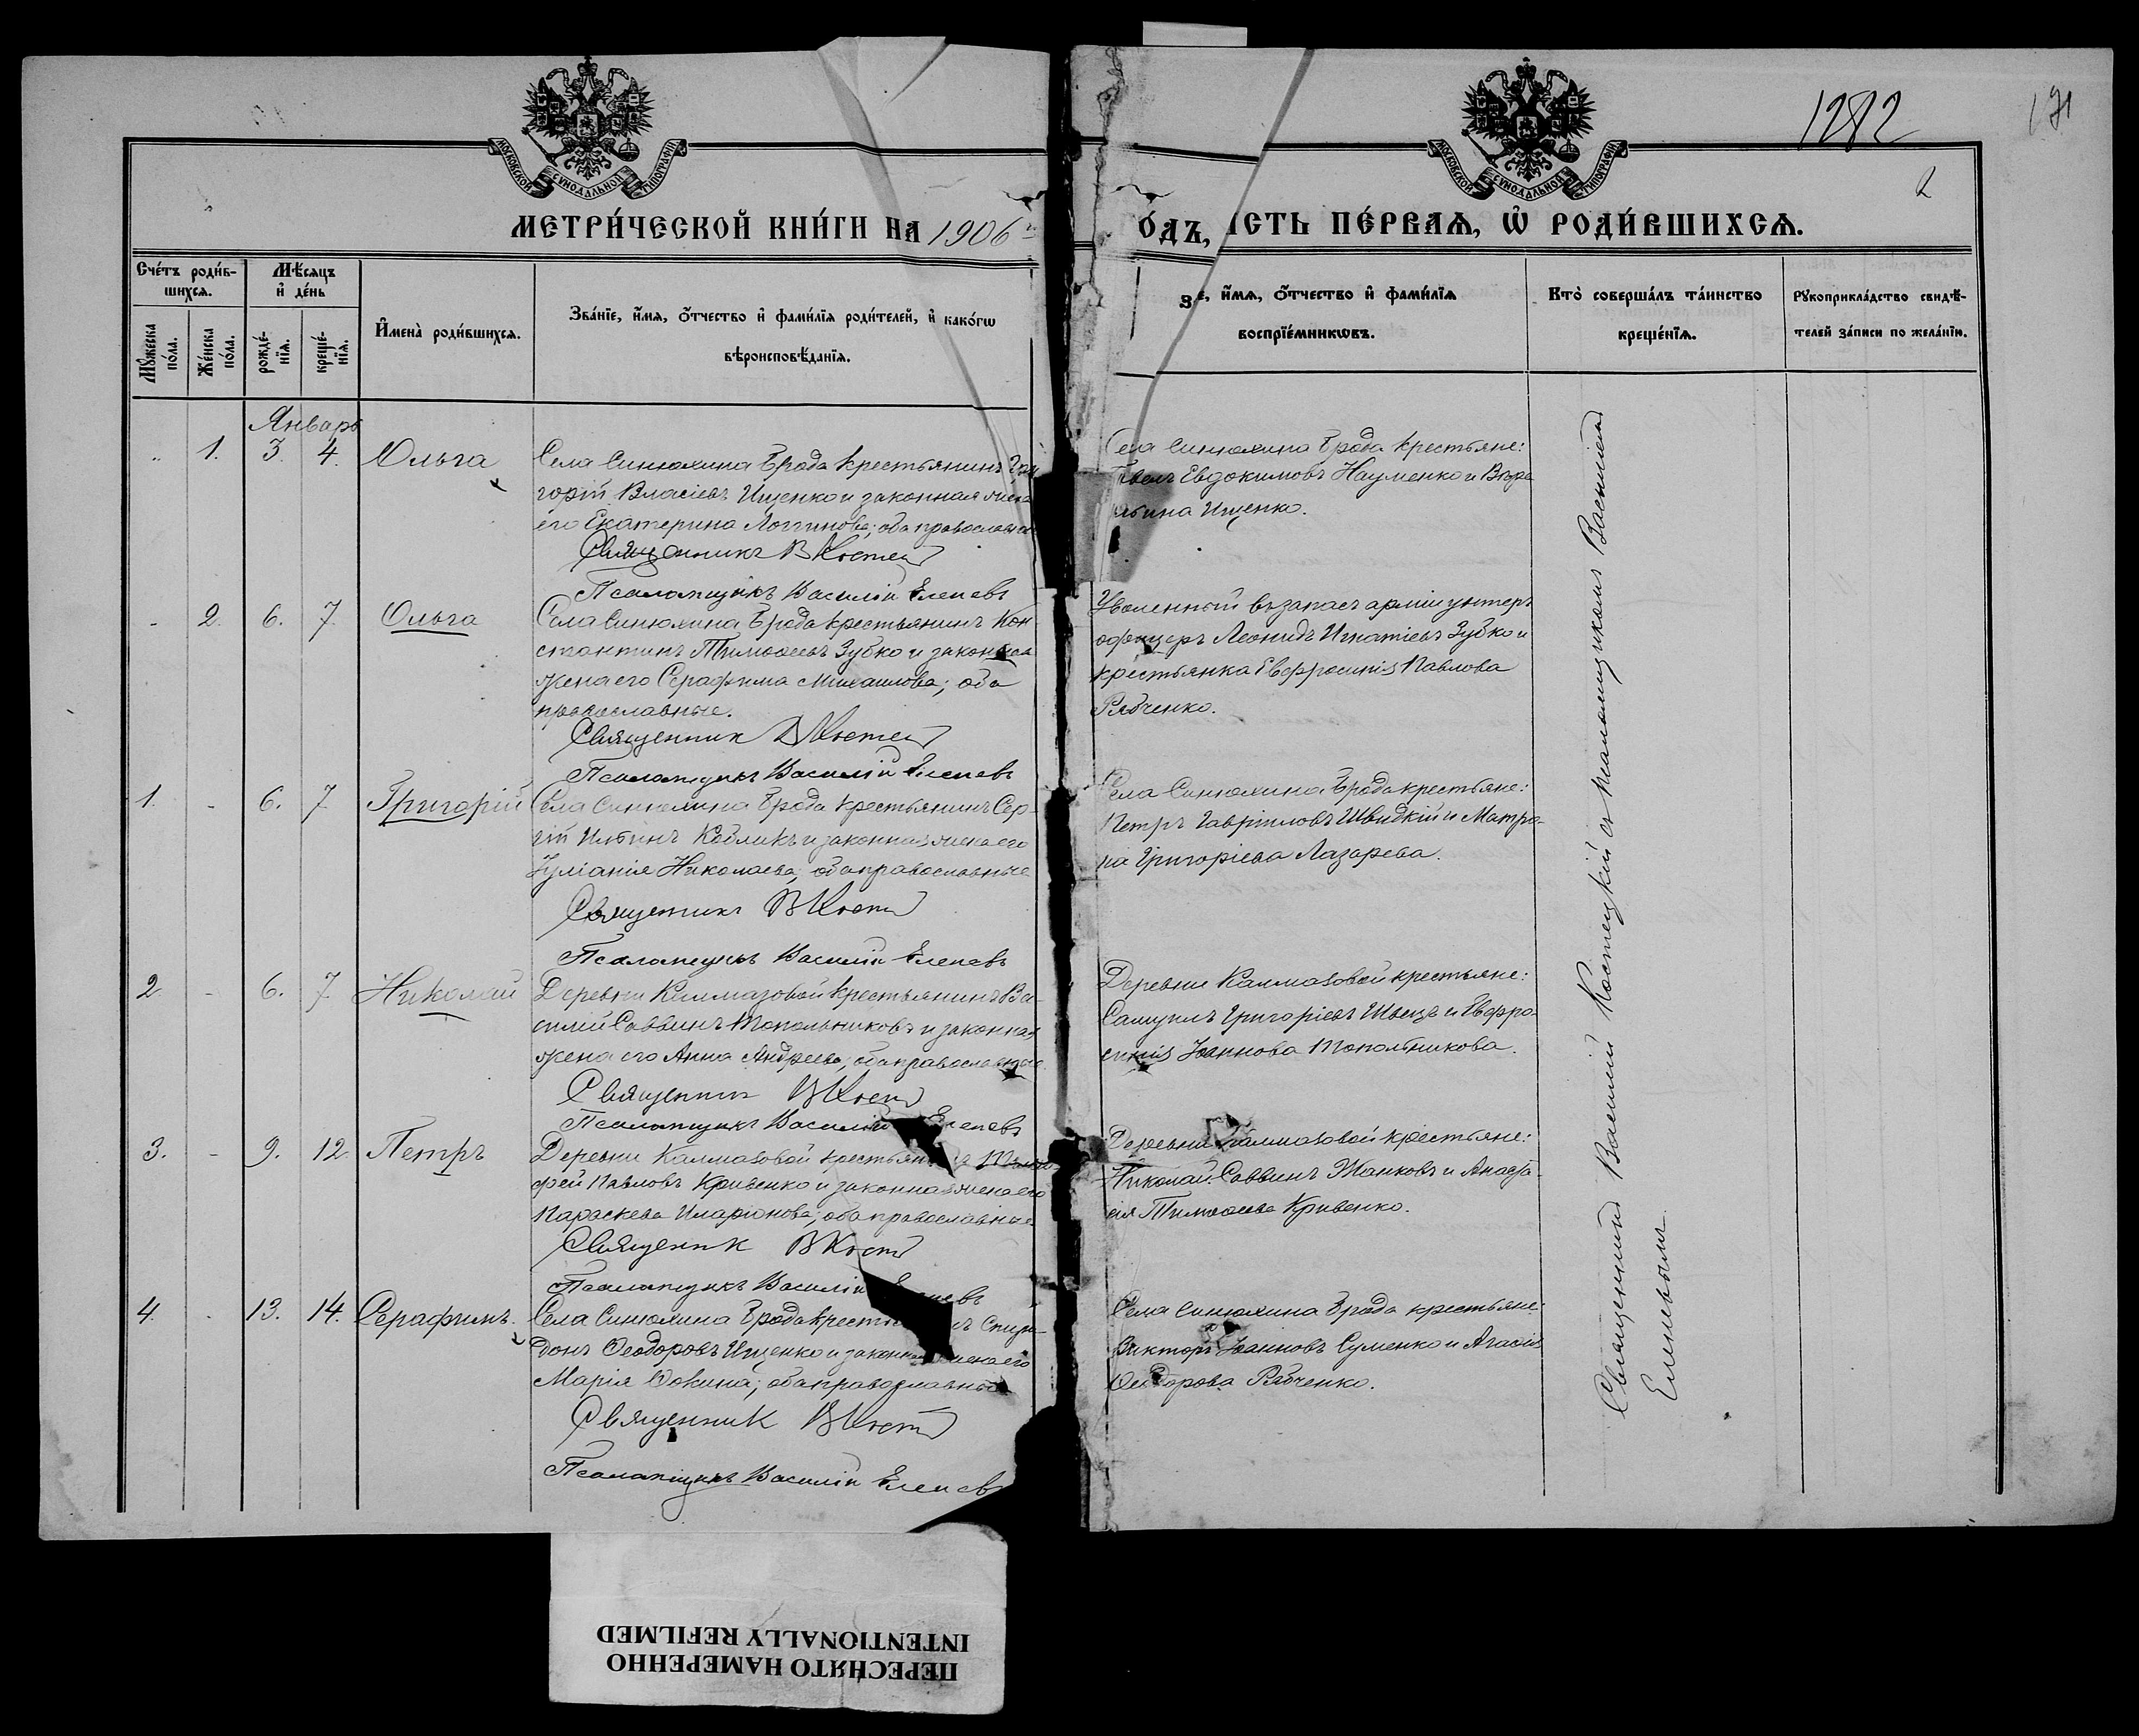 1282
171
2
МОСКОВСКОЙ СУНОДАЛЬНОЙ ТИПОГРАФІИ
МОСКОВСКОЙ СУНОДАЛЬНОЙ ТИПОГРАФІИ
МЕТРИ́ЧЕСКОЙ КНИ́ГИ НА 1906
О́ДЪ, ІСТЬ ПЕ́РВАѦ, Ѡ҆ РОДИ́ВШИХСѦ.
Сче́тъ роди́в-
шихсѧ.
Мѣ́сѧцъ
и҆ де́нь
Мꙋ́жеска
по́ла.
Же́нска
по́ла.
рожде́-
нїѧ.
креще́-
нїѧ.
И҆мена̀ роди́вшихсѧ.
Зва́нїе, и҆́мѧ, ѻ҆́тчество и҆ фами́лїѧ роди́телей, и҆ како́гѡ
вѣроисповѣ́данїѧ.
е, и҆́мѧ, ѻ҆́тчество и҆ фами́лїѧ
воспрїе́мникѡвъ.
Кто̀ соверша́лъ та́инство
креще́нїѧ.
Рꙋкоприкла́дство свидѣ́-
телей за́писи по жела́нїю.
Январь
1. 3. 4. Ольга
Села Синюхина Брода крестьянинъ Гри
горій Власіевъ Ищенко и законная жена
его Екатерина Логгинова; оба православные
Священникъ В Костец
Псаломщикъ Василій Еленевъ
Села Синюхина Брода крестьяне:
Евдокимовъ Науменко и Вѣра
Ищенко.
- 2. 6. 7. Ольга
Села Синюхина Брода крестьянинъ Кон
стантинъ Тимоѳеевъ Зубко и законная
жена его Серафима Михаилова; оба
православные.
Священник В Костец
Псаломщикъ Василій Еленевъ
Уволенный въ запасъ арміи унтеръ
офицеръ Леонидъ Игнатіевъ Зубко и
крестьянка Евфросинія Павлова
Рябченко.
1. - 6. 7 Григорій
Села Синюхина Брода крестьянинъ Сер-
гій Ильинъ и законная жена его
Іуліанія Николаева; оба православные
Священникъ В Кост
Псаломщикъ Василій Еленевъ
Села Синюхина Брода крестьяне:
Петръ Гавріиловъ Швидкій и Матро-
на Григоріева Лазарева.
2. - 6. 7 Николай
Деревни Калмазовой крестьянинъ Ва-
силій Саввинъ Топольниковъ и законная
жена его Анна Андреева; оба православные
Священник В Кост
Псаломщикъ Василій Еленевъ
Деревни Калмазовой крестьяне:
Самуилъ Григоріевъ Швецъ и Евфро-
синія Іоаннова Топольникова.
3. - 9. 12. Петръ
Деревни Калмазовой крестьян Тимо
фей Павловъ Кривенко и законная жена его
Параскева Иларіонова; оба православные
Священник В Кост
Псаломщикъ Василій
Деревни Калмазовой крестьяне:
Николай Саввинъ Жанковъ и Анаста-
сія Тимоѳеева Кривенко.
4. - 13. 14. Серафимъ.
Села Синюхина Брода крестьян Спири-
донъ Ѳеодоровъ Ищенко и законная жена его
Марія Фокина; оба православные
Священник В Кост
Псаломщикъ Василій Еленевъ
Села Синюхина Брода крестьяне:
Викторъ Іоанновъ Суменко и Агаѳія
Ѳеодорова Рябченко.
Священникъ Василій Костецкій съ псаломщикомъ Василіемъ
Еленевымъ.
ПЕРЕСНЯТО НАМЕРЕННО
INTENTIONALLY REFILMED